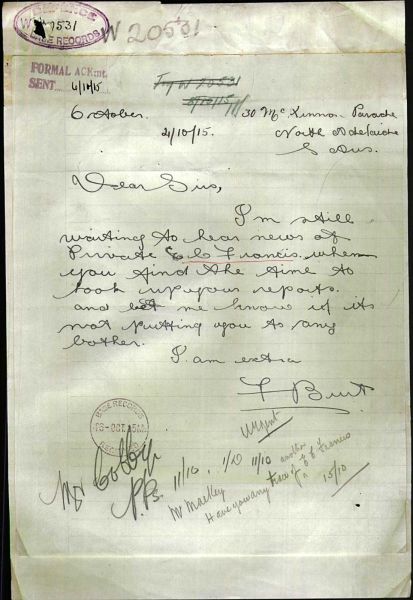 DEFENCE
W 20531
BASE RECORDS
W 20531
FORMAL ACKmt.
SENT 6/10/15
W 20531
6 October.
30 McKinnon Parade
4/10/15.
North Adelaide
S Aus.
Dear Sirs,
I'm still
waiting to hear news of
Private E C Francis. when
you find the time to
look up your reports.
and let me know if its
not putting you to any
bother.
I am extra
F Burt
BASE RECORDS
OCT. 1915
Urgent
Mr Cobby
P.B. 11/10
11/10
Mr Mackey
Have you any
another
trace of E C Francis
15/10